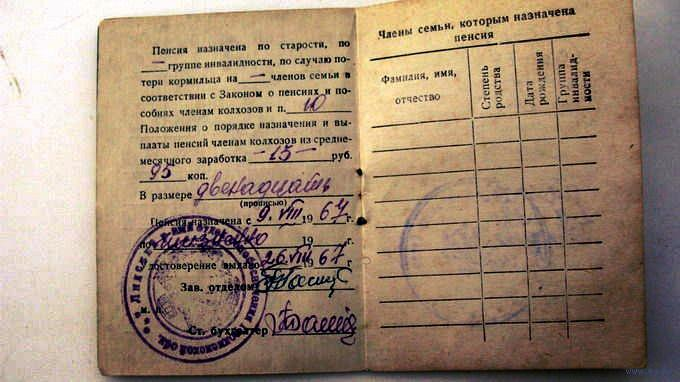 Пенсия назначена по старости, по
— группе инвалидности, по случаю по-
тери кормильца на — членов семьи в
соответствии с Законом о пенсиях и по-
собиях членам колхозов и п. 10
Положения о порядке назначения и вы-
платы пенсий членам колхозов из средне-
месячного заработка —15— руб.
95 коп.
В размере двенадцать
(прописью)
Пенсия назначена с 9.VIII 1967 г.
по пожизненно 19 г.
достоверение выдано 26.VIII 1967 г.
Зав. отделом
м. п.
Ст. бухгалтер
Члены семьи, которым назначена
пенсия
Фамилия, имя,
отчество
Степень
родства
Дата
рождения
Группа
инвалид-
ности